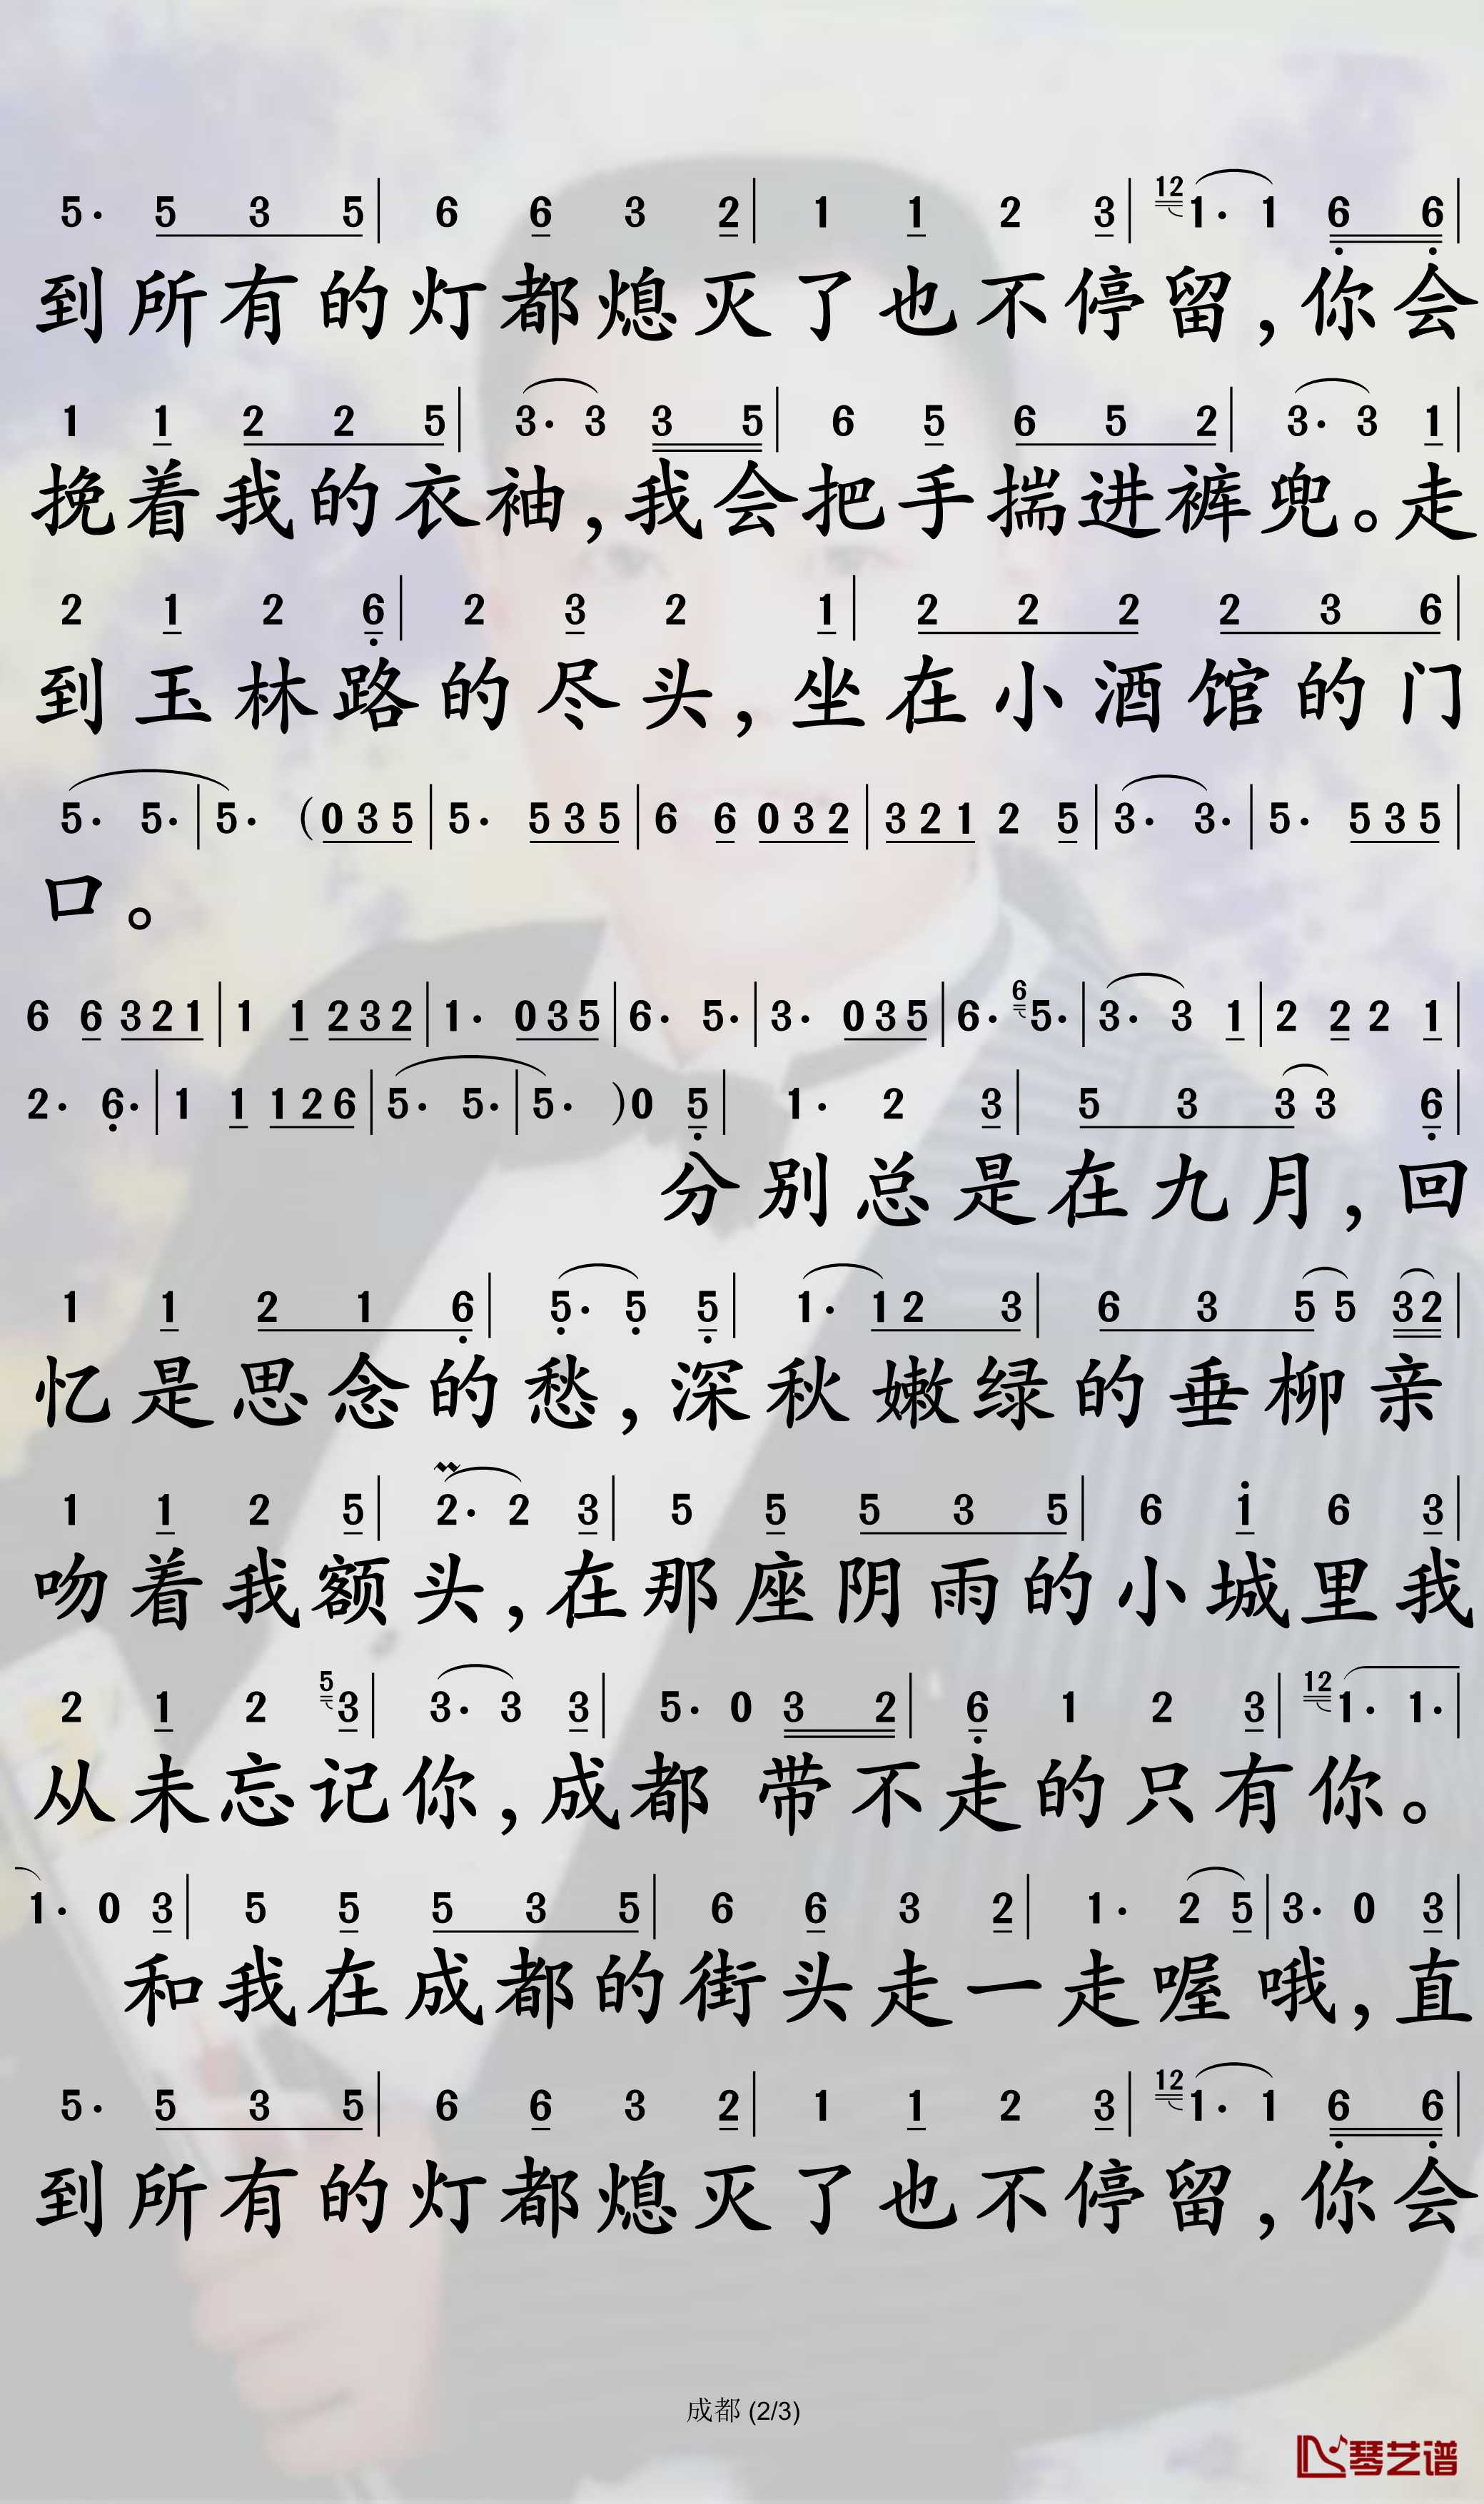 5· 5 3 5 | 6 6 3 2 | 1 1 2 3 | 12 1· 1 6 6 |
到所有的灯都熄灭了也不停留,你会
1 1 2 2 5 | 3· 3 3 5 | 6 5 6 5 2 | 3· 3 1 |
挽着我的衣袖,我会把手揣进裤兜。走
2 1 2 6 | 2 3 2 1 | 2 2 2 2 3 6 |
到玉林路的尽头,坐在小酒馆的门
5· 5· | 5· (0 3 5 | 5· 5 3 5 | 6 6 0 3 2 | 3 2 1 2 5 | 3· 3· | 5· 5 3 5 |
口。
6 6 3 2 1 | 1 1 2 3 2 | 1· 0 3 5 | 6· 5· | 3· 0 3 5 | 6· 6 5· | 3· 3 1 | 2 2 2 1 |
2· 6· | 1 1 1 2 6 | 5· 5· | 5· )0 5 | 1· 2 3 | 5 3 3 3 6 |
分别总是在九月,回
1 1 2 1 6 | 5· 5 5 | 1· 1 2 3 | 6 3 5 5 3 2 |
忆是思念的愁,深秋嫩绿的垂柳亲
1 1 2 5 | 2· 2 3 | 5 5 5 3 5 | 6 1 6 3 |
吻着我额头,在那座阴雨的小城里我
2 1 2 5 3 | 3· 3 3 | 5· 0 3 2 | 6 1 2 3 | 12 1· 1· |
从未忘记你,成都 带不走的只有你。
1· 0 3 | 5 5 5 3 5 | 6 6 3 2 | 1· 2 5 | 3· 0 3 |
和我在成都的街头走一走喔哦,直
5· 5 3 5 | 6 6 3 2 | 1 1 2 3 | 12 1· 1 6 6 |
到所有的灯都熄灭了也不停留,你会
成都 (2/3)
琴艺谱